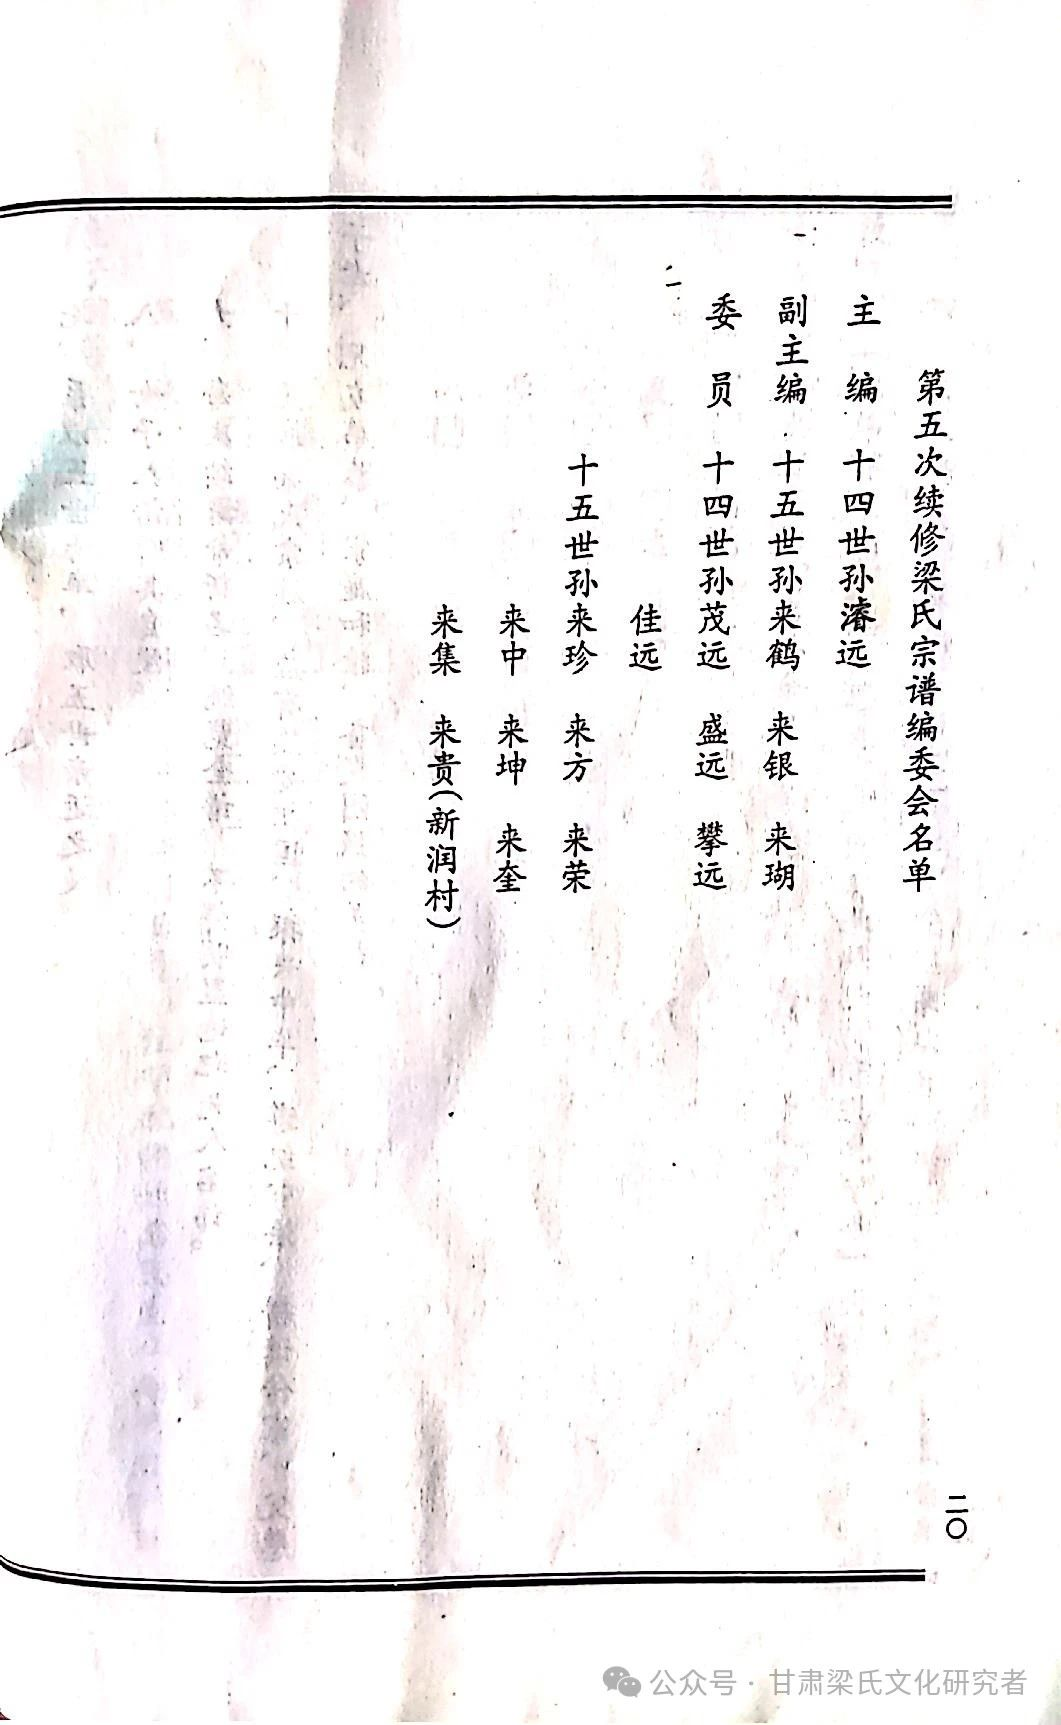 第五次续修梁氏宗谱编委会名单
主 编 十四世孙濬远
副主编 十五世孙来鹤 来银 来瑚
委 员 十四世孙茂远 盛远 攀远
佳远
十五世孙来珍 来方 来荣
来中 来坤 来奎
来集 来贵(新润村)
二〇
公众号·甘肃梁氏文化研究者